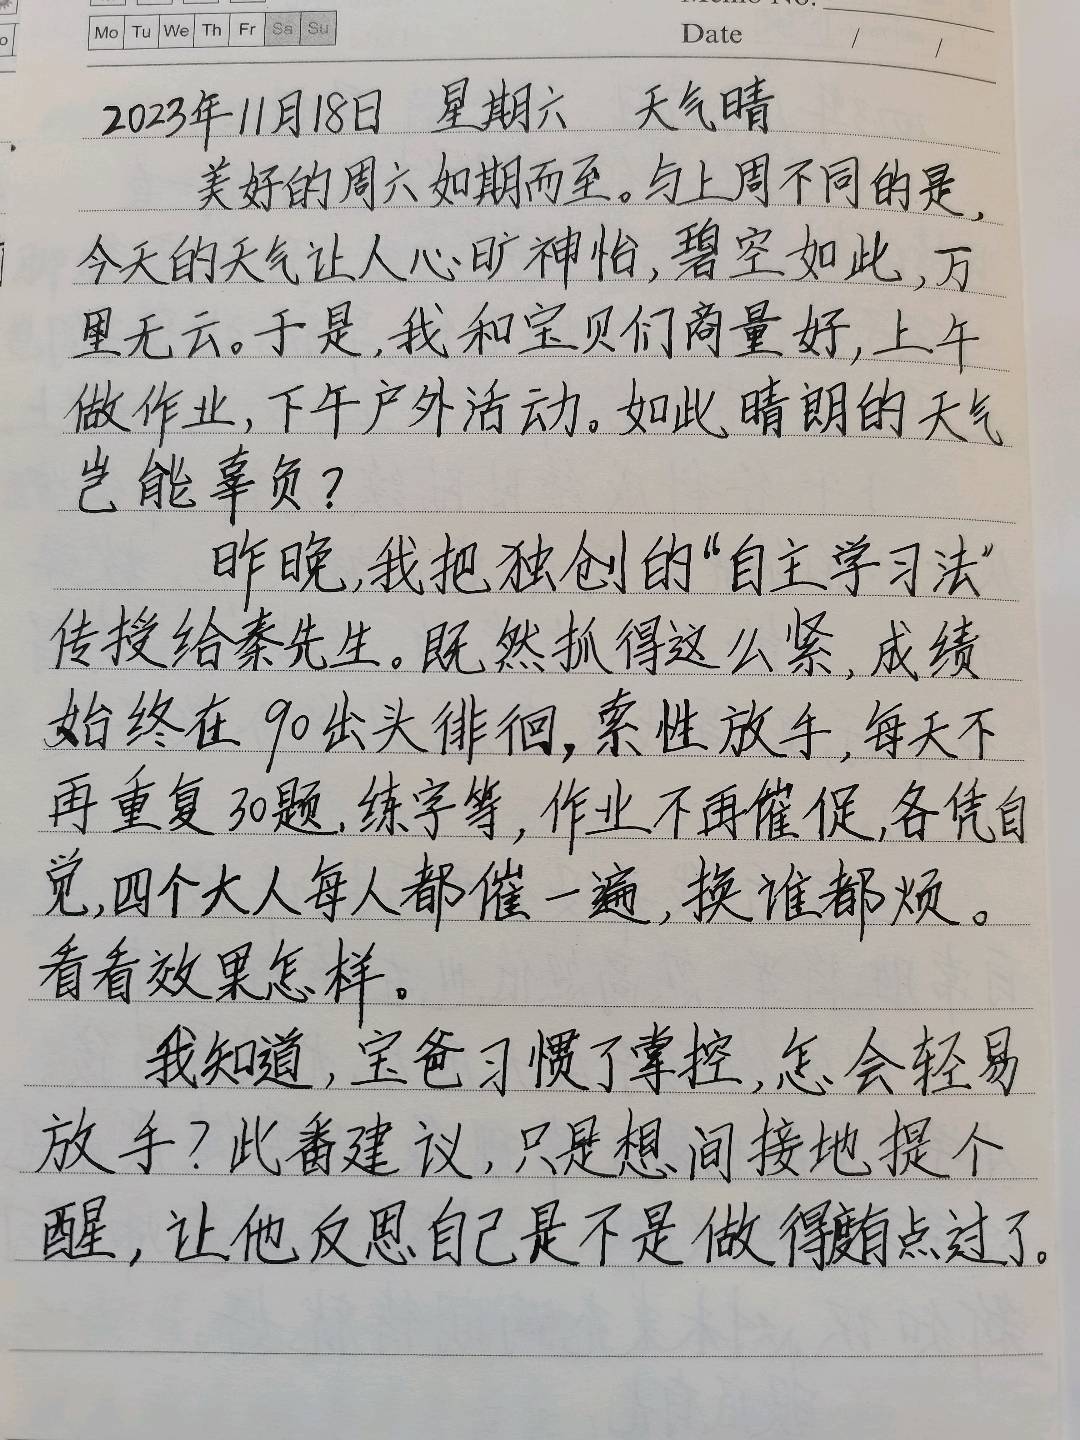 Memo No.
Mo Tu We Th Fr Sa Su
Date / /
2023年11月18日 星期六 天气晴
美好的周六如期而至。与上周不同的是,
今天的天气让人心旷神怡,碧空如此,万
里无云。于是,我和宝贝们商量好,上午
做作业,下午户外活动。如此晴朗的天气
岂能辜负?
昨晚,我把独创的“自主学习法”
传授给秦先生。既然抓得这么紧,成绩
始终在90出头徘徊,索性放手,每天不
再重复30题,练字等,作业不再催促,各凭自
觉,四个大人每人都催一遍,换谁都烦。
看看效果怎样。
我知道,宝爸习惯了掌控,怎会轻易
放手?此番建议,只是想间接地提个
醒,让他反思自己是不是做得有点过了。